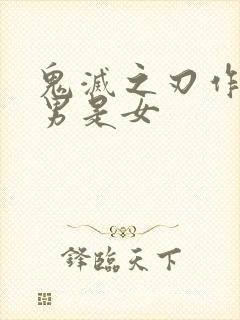 鬼滅之刃作
男是女
鋒臨天下